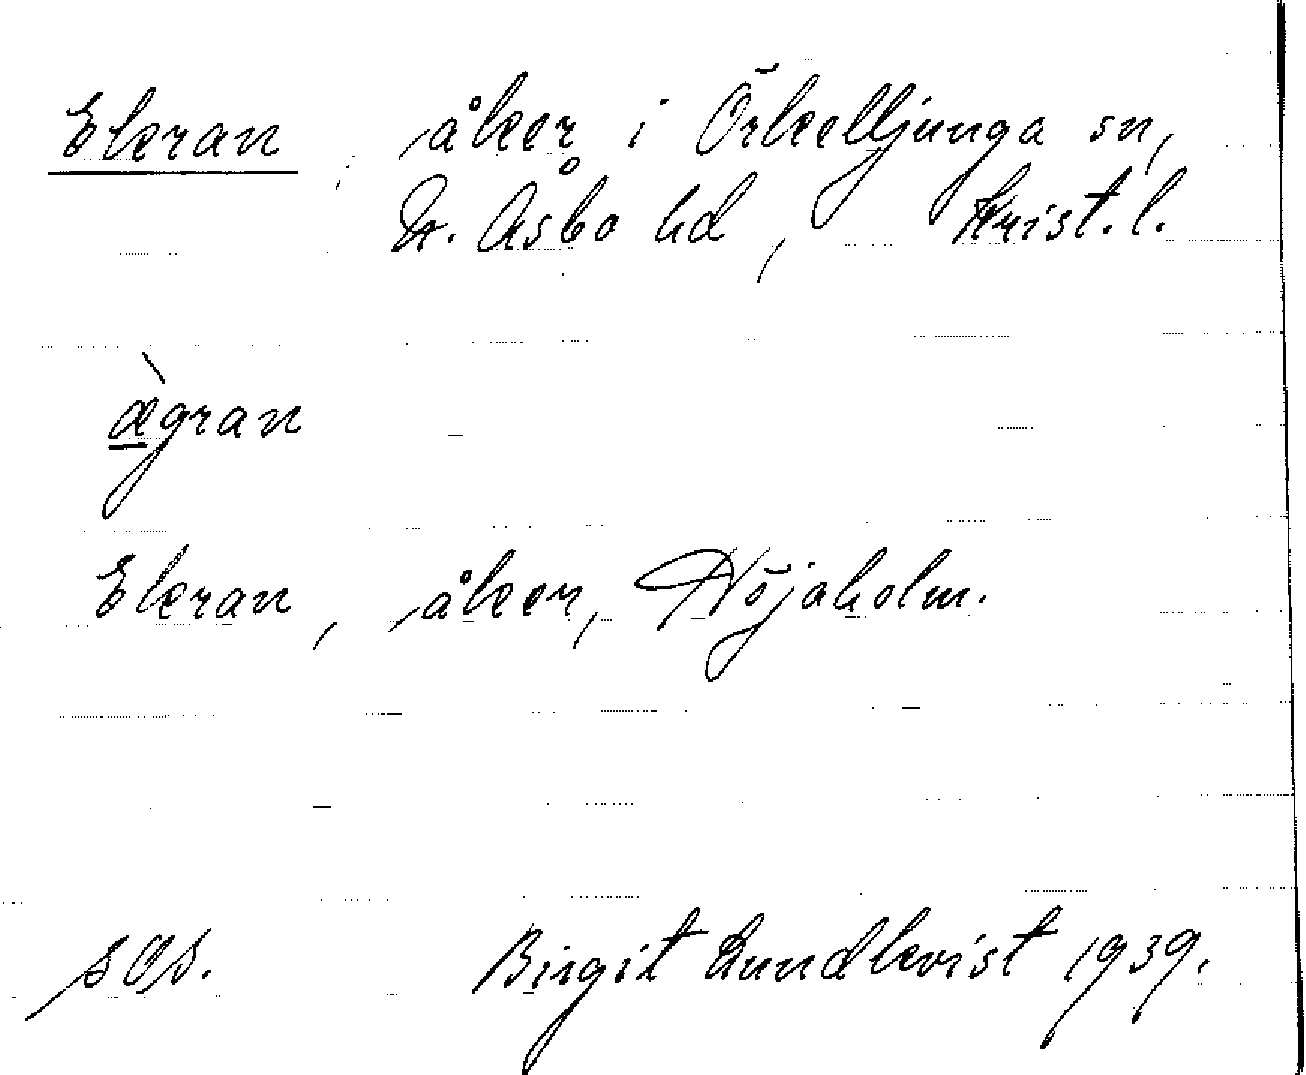 Ekran, åker i Örkelljunga sn,
N. Åsbo hd, Krist. l.
æ̀gran
Ekran, åker, Nöjaholm.
sOs. Birgit Lundkvist 1939.